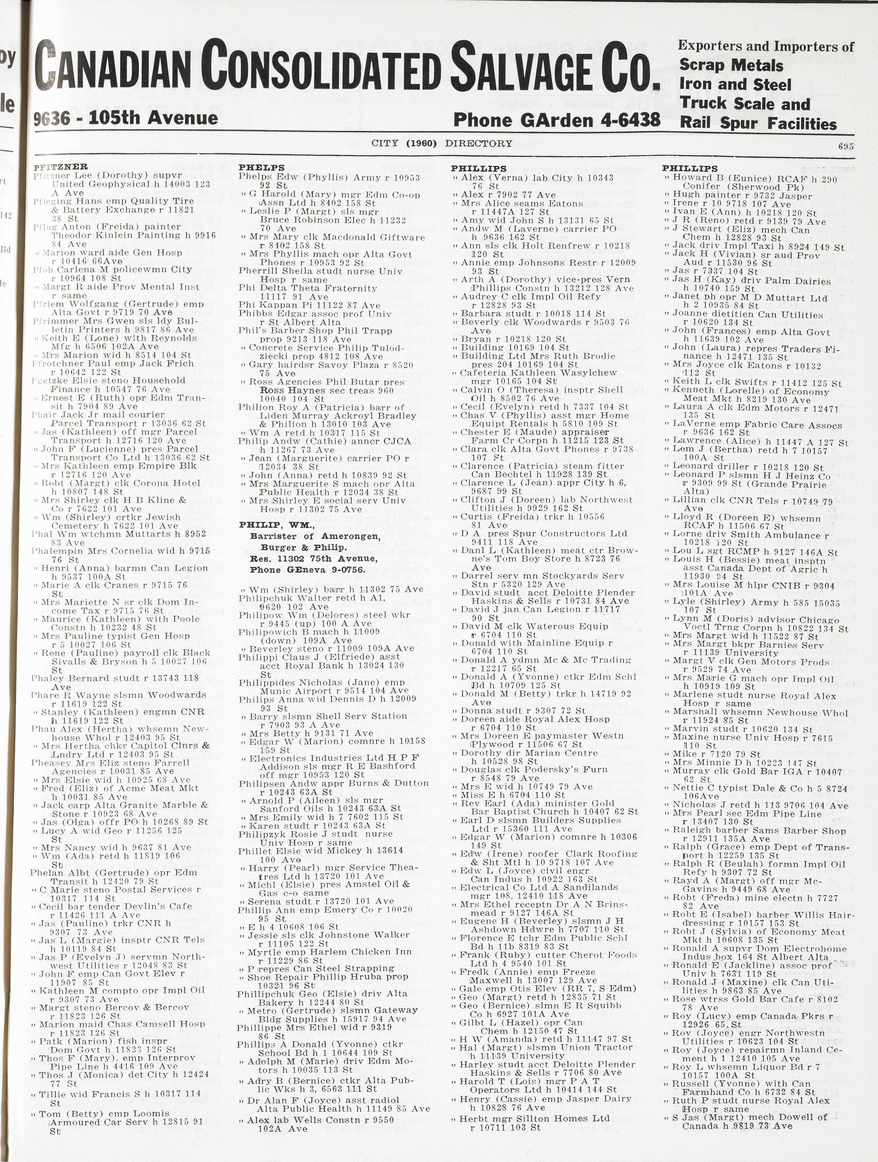 CANADIAN CONSOLIDATED SALVAGE CO.
9636 - 105th Avenue
Phone GArden 4-6438
Exporters and Importers of
Scrap Metals
Iron and Steel
Truck Scale and
Rail Spur Facilities
CITY (1960) DIRECTORY
695
PFITZNER
Pfitzner Lee (Dorothy) supvr
United Geophysical h 14003 123
A Ave
Pfleging Hans emp Quality Tire
& Battery Exchange r 11821
38 St
Pflug Anton (Freida) painter
Theodor Kinlein Painting h 9916
84 Ave
" Marion ward aide Gen Hosp
r 10416 66Ave
Pfoh Carlena M policewmn City
r 10964 108 St
" Margt R aide Prov Mental Inst
r same
Pfriem Wolfgang (Gertrude) emp
Alta Govt r 9719 70 Ave
Pfrimmer Mrs Gwen sls ldy Bul-
letin Printers h 9817 86 Ave
" Keith E (Lone) with Reynolds
Mfg h 6506 102A Ave
" Mrs Marion wid h 8514 104 St
Pfrotchner Paul emp Jack Frich
r 10642 122 St
Pfuetzke Elsie steno Household
Finance h 10547 76 Ave
" Ernest E (Ruth) opr Edm Tran-
sit h 7904 89 Ave
Phair Jack Jr mail courier
Parcel Transport r 13036 62 St
" Jas (Kathleen) off mgr Parcel
Transport h 12716 120 Ave
" John F (Lucienne) pres Parcel
Transport Co Ltd h 13036 62 St
" Mrs Kathleen emp Empire Blk
r 12716 120 Ave
" Robt (Margt) clk Corona Hotel
h 10807 148 St
" Mrs Shirley clk H B Kline &
Co r 7622 101 Ave
" Wm (Shirley) crtkr Jewish
Cemetery h 7622 101 Ave
Phal Wm wtchmn Muttarts h 8952
83 Ave
Phalempin Mrs Cornelia wid h 9715
76 St
" Henri (Anna) barmn Can Legion
h 9537 100A St
" Marie A clk Cranes r 9715 76
St
" Mrs Mariette N sr clk Dom In-
come Tax r 9715 76 St
" Maurice (Kathleen) with Poole
Constn h 10232 48 St
" Mrs Pauline typist Gen Hosp
r 5 10027 106 St
" Rene (Pauline) payroll clk Black
Sivalls & Bryson h 5 10027 106
St
Phaley Bernard studt r 13743 118
Ave
Phare R Wayne slsmn Woodwards
r 11619 122 St
" Stanley (Kathleen) engmn CNR
h 11619 122 St
Phau Alex (Hertha) whsemn New-
house Whol r 12403 95 St
" Mrs Hertha chkr Capitol Clnrs &
Lndry Ltd r 12403 95 St
Pheasey Mrs Eliz steno Farrell
Agencies r 10031 85 Ave
" Mrs Elsie wid h 10925 68 Ave
" Fred (Eliz) of Acme Meat Mkt
h 10031 85 Ave
" Jack carp Alta Granite Marble &
Stone r 10923 68 Ave
" Jas (Olga) offr PO h 10268 89 St
" Lucy A wid Geo r 11256 125
St
" Mrs Nancy wid h 9637 81 Ave
" Wm (Ada) retd h 11819 106
St
Phelan Albt (Gertrude) opr Edm
Transit h 12420 79 St
" C Marie steno Postal Services r
10317 114 St
" Cecil bar tender Devlin's Cafe
r 11426 111 A Ave
" Jas (Pauline) trkr CNR h
9307 73 Ave
" Jas L (Margie) insptr CNR Tels
h 10119 84 St
" Jas P (Evelyn J) servmn North-
west Utilities r 12048 83 St
" John F emp Can Govt Elev r
11907 85 St
" Kathleen M compto opr Imptl Oil
r 9307 73 Ave
" Margt steno Bercov & Bercov
r 11823 126 St
" Marion maid Chas Camsell Hosp
r 11823 126 St
" Patk (Marion) fish inspr
Dom Govt h 11823 126 St
" Thos F (Mary) emp Interprov
Pipe Line h 4416 109 Ave
" Thos J (Monica) det City h 12424
77 St
" Tillie wid Francis S h 10317 114
St
" Tom (Betty) emp Loomis
Armoured Car Serv h 12815 91
St
PHELPS
Phelps Edw (Phyllis) Army r 10953
92 St
" G Harold (Mary) mgr Edm Co-op
Assn Ltd h 8402 158 St
" Leslie P (Margt) sls mgr
Bruce Robinson Elec h 11232
70 Ave
" Mrs Mary clk Macdonald Giftware
r 8402 158 St
" Mrs Phyllis mach opr Alta Govt
Phones r 10953 92 St
Pherrill Sheila studt nurse Univ
Hosp r same
Phi Delta Theta Fraternity
11117 91 Ave
Phi Kappan Pi 11122 87 Ave
Phibbs Edgar assoc prof Univ
r St Albert Alta
Phil's Barber Shop Phil Trapp
prop 9213 118 Ave
" Concrete Service Philip Tulod-
ziecki prop 4812 108 Ave
" Gary hairdsr Savoy Plaza r 8520
75 Ave
" Ross Agencies Phil Butar pres
Ross Haynes sec treas 960
10040 104 St
Philion Roy A (Patricia) barr of
Liden Murray Ackroyl Bradley
& Philion h 13010 103 Ave
" Wm A retd h 10317 115 St
Philip Andw (Cathie) janner CJCA
h 11267 73 Ave
" Jean (Marguerite) carrier PO r
12034 38 St
" John (Anna) retd h 10839 92 St
" Mrs Marguerite S mach opr Alta
Public Health r 12034 38 St
" Mrs Shirley E social serv Univ
Hosp r 11302 75 Ave
PHILIP, WM.,
Barrister of Amerongen,
Burger & Philip.
Res. 11302 75th Avenue,
Phone GEneva 9-0756.
" Wm (Shirley) barr h 11302 75 Ave
Philipchuk Walter retd h A1,
9620 102 Ave
Philipow Wm (Delores) steel wkr
r 9445 (up) 100 A Ave
Philipowich B mach h 11009
(down) 109A Ave
" Beverley steno r 11009 109A Ave
Philippi Claus J (Elfriede) asst
acct Royal Bank h 13024 130
St
Philippides Nicholas (Jane) emp
Munic Airport r 9514 104 Ave
Philips Anna wid Dennis D h 12009
93 St
" Barry slsmn Shell Serv Station
r 7903 93 A Ave
" Mrs Betty h 9131 71 Ave
" Edgar W (Marion) comnre h 10158
159 St
" Electronics Industries Ltd H P F
Addison sls mgr R E Bashford
off mgr 10953 120 St
Philipsen Andw appr Burns & Dutton
r 10243 63A St
" Arnold P (Aileen) sls mgr
Sanford Oils h 10243 63A St
" Mrs Emily wid h 7 7602 115 St
" Karen studt r 10243 63A St
Philipzyk Rosie J studt nurse
Univ Hosp r same
Phillet Elsie wid Mickey h 13614
100 Ave
" Harry (Pearl) mgr Service Thea-
tres Ltd h 13720 101 Ave
" Michl (Elsie) pres Amstel Oil &
Gas c-o same
" Serena studt r 13720 101 Ave
Phillip Ann emp Emery Co r 10020
95 St
" E h 4 10608 106 St
" Jessie sls clk Johnstone Walker
r 11105 122 St
" Myrtle emp Harlem Chicken Inn
r 11229 86 St
" P repres Can Steel Strapping
" Shoe Repair Phillip Hruba prop
10321 96 St
Phillipchuk Geo (Elsie) driv Alta
Bakery h 12244 80 St
" Metro (Gertrude) slsmn Gateway
Bldg Supplies h 15917 94 Ave
Phillippe Mrs Ethel wid r 9319
86 St
Phillips A Donald (Yvonne) ctkr
School Bd h 10644 109 St
" Adolph M (Marie) driv Edm Mo-
tors h 10035 113 St
" Adry B (Bernice) ctkr Alta Pub-
lic Wks h 3, 6563 111 St
" Dr Alan F (Joyce) asst radiol
Alta Public Health h 11149 85 Ave
" Alex lab Wells Constn r 9550
102A Ave
PHILLIPS
" Alex (Verna) lab City h 10343
76 St
" Alex r 7902 77 Ave
" Mrs Alice seams Eatons
r 11447A 127 St
" Amy wid John S h 13131 65 St
" Andw M (Laverne) carrier PO
h 9636 162 St
" Ann sls clk Holt Renfrew r 10218
120 St
" Annie emp Johnsons Restr r 12009
93 St
" Arth A (Dorothy) vice-pres Vern
Phillips Constn h 13212 128 Ave
" Audrey C clk Impl Oil Refy
r 12828 93 St
" Barbara studt r 10018 114 St
" Beverly clk Woodwards r 9503 76
Ave
" Bryan r 10218 120 St
" Building 10169 104 St
" Building Ltd Mrs Ruth Brodie
pres 204 10169 104 St
" Cafeteria Kathleen Wasylchew
mgr 10165 104 St
" Calvin O (Theresa) insptr Shell
Oil h 8502 76 Ave
" Cecil (Evelyn) retd r 7337 104 St
" Chas V (Phyllis) asst mgr Home
Equipt Rentals h 5810 109 St
" Chester E (Maude) appraiser
Farm Cr Corpn h 11215 123 St
" Clara clk Alta Govt Phones r 9738
107 St
" Clarence (Patricia) steam fitter
Can Bechtel h 11928 139 St
" Clarence L (Jean) appr City h 6,
9687 99 St
" Clifton J (Doreen) lab Northwest
Utilities h 9929 162 St
" Curtis (Freida) trkr h 10556
81 Ave
" D A pres Spur Constructors Ltd
9411 118 Ave
" Danl L (Kathleen) meat ctr Brow-
ne's Tom Boy Store h 8723 76
Ave
" Darrel serv mn Stockyards Serv
Stn r 5320 129 Ave
" David studt acct Deloitte Plender
Haskins & Sells r 10731 84 Ave
" David J jan Can Legion r 11717
90 St
" David M clk Waterous Equip
r 6704 110 St
" Donald with Mainline Equip r
6704 110 St
" Donald A ydmn Mc & Mc Trading
r 12217 65 St
" Donald A (Yvonne) ctkr Edm Schl
Bd h 10709 125 St
" Donald M (Betty) trkr h 14719 92
Ave
" Donna studt r 9307 72 St
" Doreen aide Royal Alex Hosp
r 6704 110 St
" Mrs Doreen E paymaster Westn
Plywood r 11506 67 St
" Dorothy dir Marian Centre
h 10528 98 St
" Douglas clk Podersky's Furn
r 8548 79 Ave
" Mrs E wid h 10749 79 Ave
" Miss E h 6704 110 St
" Rev Earl (Ada) minister Gold
Bar Baptist Church h 10407 62 St
" Earl D slsmn Builders Supplies
Ltd r 15360 111 Ave
" Edgar W (Marion) comnre h 10306
149 St
" Edw (Irene) roofer Clark Roofing
& Sht Mtl h 10 9718 107 Ave
" Edw L (Joyce) civil engr
Can Indus h 10922 163 St
" Electrical Co Ltd A Sandilands
mgr 108, 12410 118 Ave
" Mrs Ethel receptn Dr A N Brins-
mead r 9127 146A St
" Eugene H (Beverley) slsmn J H
Ashdown Hdwre h 7707 110 St
" Florence E tchr Edm Public Schl
Bd h 11b 8319 83 St
" Frank (Ruby) cutter Cherot Foods
Ltd h 4 9540 101 St
" Fredk (Annie) emp Freeze
Maxwell h 13007 129 Ave
" Gale emp Otis Elev (RR 7, S Edm)
" Geo (Margt) retd h 12835 71 St
" Geo (Bernice) slmn E R Squibb
Co h 6927 101A Ave
" Gilbt L (Hazel) opr Can
Chem h 12150 47 St
" H W (Amanda) retd h 11147 97 St
" Hal (Margt) slsmn Union Tractor
h 11139 University
" Harley studt acct Deloitte Plender
Haskins & Sells r 7706 80 Ave
" Harold T (Lois) mgr P A T
Operators Ltd h 10414 144 St
" Henry (Cassie) emp Jasper Dairy
h 10828 76 Ave
" Herbt mgr Silton Homes Ltd
r 10711 103 St
PHILLIPS
" Howard B (Eunice) RCAF h 290
Conifer (Sherwood Pk)
" Hugh painter r 9732 Jasper
" Irene r 10 9718 107 Ave
" Ivan E (Ann) h 10218 120 St
" J R (Reno) retd r 9139 79 Ave
" J Stewart (Eliz) mech Can
Chem h 12828 93 St
" Jack driv Impl Taxi h 8924 149 St
" Jack H (Vivian) sr aud Prov
Aud r 11530 96 St
" Jas r 7337 104 St
" Jas H (Kay) driv Palm Dairies
h 10740 159 St
" Janet ph opr M D Muttart Ltd
h 2 10935 84 St
" Joanne dietition Can Utilities
r 10620 134 St
" John (Frances) emp Alta Govt
h 11639 102 Ave
" John (Laura) repres Traders Fi-
nance h 12471 135 St
" Mrs Joyce clk Eatons r 10132
112 St
" Keith L clk Swifts r 11412 125 St
" Kenneth (Lorelle) of Economy
Meat Mkt h 8219 130 Ave
" Laura A clk Edm Motors r 12471
135 St
" LaVerne emp Fabric Care Assocs
r 9636 162 St
" Lawrence (Alice) h 11447 A 127 St
" Lem J (Bertha) retd h 7 10157
100A St
" Leonard driller r 10218 120 St
" Leonard P slsmn H J Heinz Co
r 9309 99 St (Grande Prairie
Alta)
" Lillian clk CNR Tels r 10749 79
Ave
" Lloyd R (Doreen E) whsemn
RCAF h 11506 67 St
" Lorne driv Smith Ambulance r
10218 120 St
" Lou L sgt RCMP h 9127 146A St
" Louis H (Bessie) meat insptn
asst Canada Dept of Agric h
11930 94 St
" Mrs Louise M hlpr CNIB r 9304
101A Ave
" Lyle (Shirley) Army h 585 15035
107 St
" Lynn M (Doris) advisor Chicago
Voctl Trng Corpn h 10822 134 St
" Mrs Margt wid h 11522 87 St
" Mrs Margt bkpr Barnies Serv
r 11139 University
" Margt V clk Gen Motors Prods
r 9529 74 Ave
" Mrs Marie G mach opr Impl Oil
h 10919 109 St
" Marlene studt nurse Royal Alex
Hosp r same
" Marsnall whsemn Newhouse Whol
r 11924 85 St
" Marvin studt r 10620 134 St
" Maxine nurse Univ Hosp r 7615
110 St
" Mike r 7120 79 St
" Mrs Minnie D h 10223 147 St
" Murray clk Gold Bar IGA r 10407
62 St
" Nettie C typist Dale & Co h 5 8724
106Ave
" Nicholas J retd h 113 9706 104 Ave
" Mrs Pearl sec Edm Pipe Line
r 13407 130 St
" Raleigh barber Sams Barber Shop
r 12911 135A Ave
" Ralph (Grace) emp Dept of Trans-
port h 12259 135 St
" Ralph R (Beulah) formn Impl Oil
Refy h 9307 72 St
" Rayd A (Margt) off mgr Mc-
Gavins h 9449 68 Ave
" Robt (Freda) mine electn h 7727
82 Ave
" Robt E (Isabel) barber Willis Hair-
dressing r 10157 153 St
" Robt J (Sylvia) of Economy Meat
Mkt h 10608 135 St
" Ronald A supvr Dom Electrohome
Indus box 164 St Albert Alta
" Ronald E (Jackline) assoc prof
Univ h 7631 119 St
" Ronald J (Maxine) clk Can Uti-
lities h 9863 85 Ave
" Rose wtrss Gold Bar Cafe r 8102
78 Ave
" Roy (Lucy) emp Canada Pkrs r
12926 65 St
" Roy (Joyce) engr Northwestn
Utilities r 10623 104 St
" Roy (Joyce) repairmn Inland Ce-
ment h 1 12410 105 Ave
" Roy L whsemn Liquor Bd r 7
10157 100A St
" Russell (Yvonne) with Can
Farmhand Co h 6732 84 St
" Ruth P studt nurse Royal Alex
Hosp r same
" S Jas (Margt) mech Dowell of
Canada h 9819 73 Ave